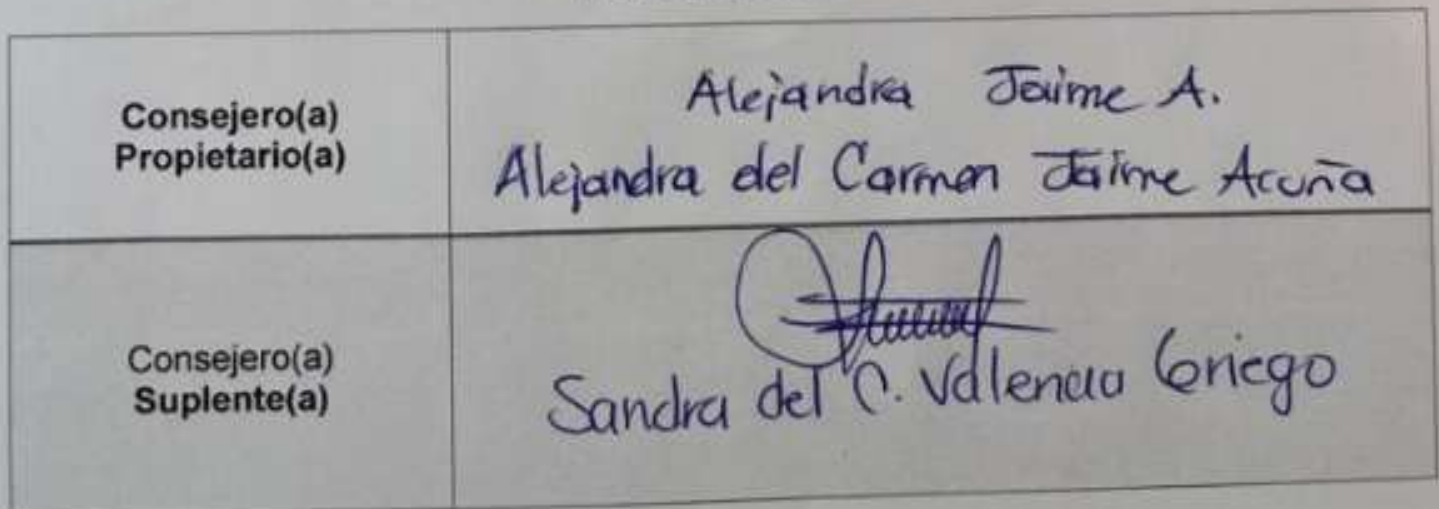 Consejero(a)
Propietario(a)
Alejandra Jaime A.
Alejandra del Carmen Jaime Acuña
Consejero(a)
Suplente(a)
Sandra del C. Valencia Griego